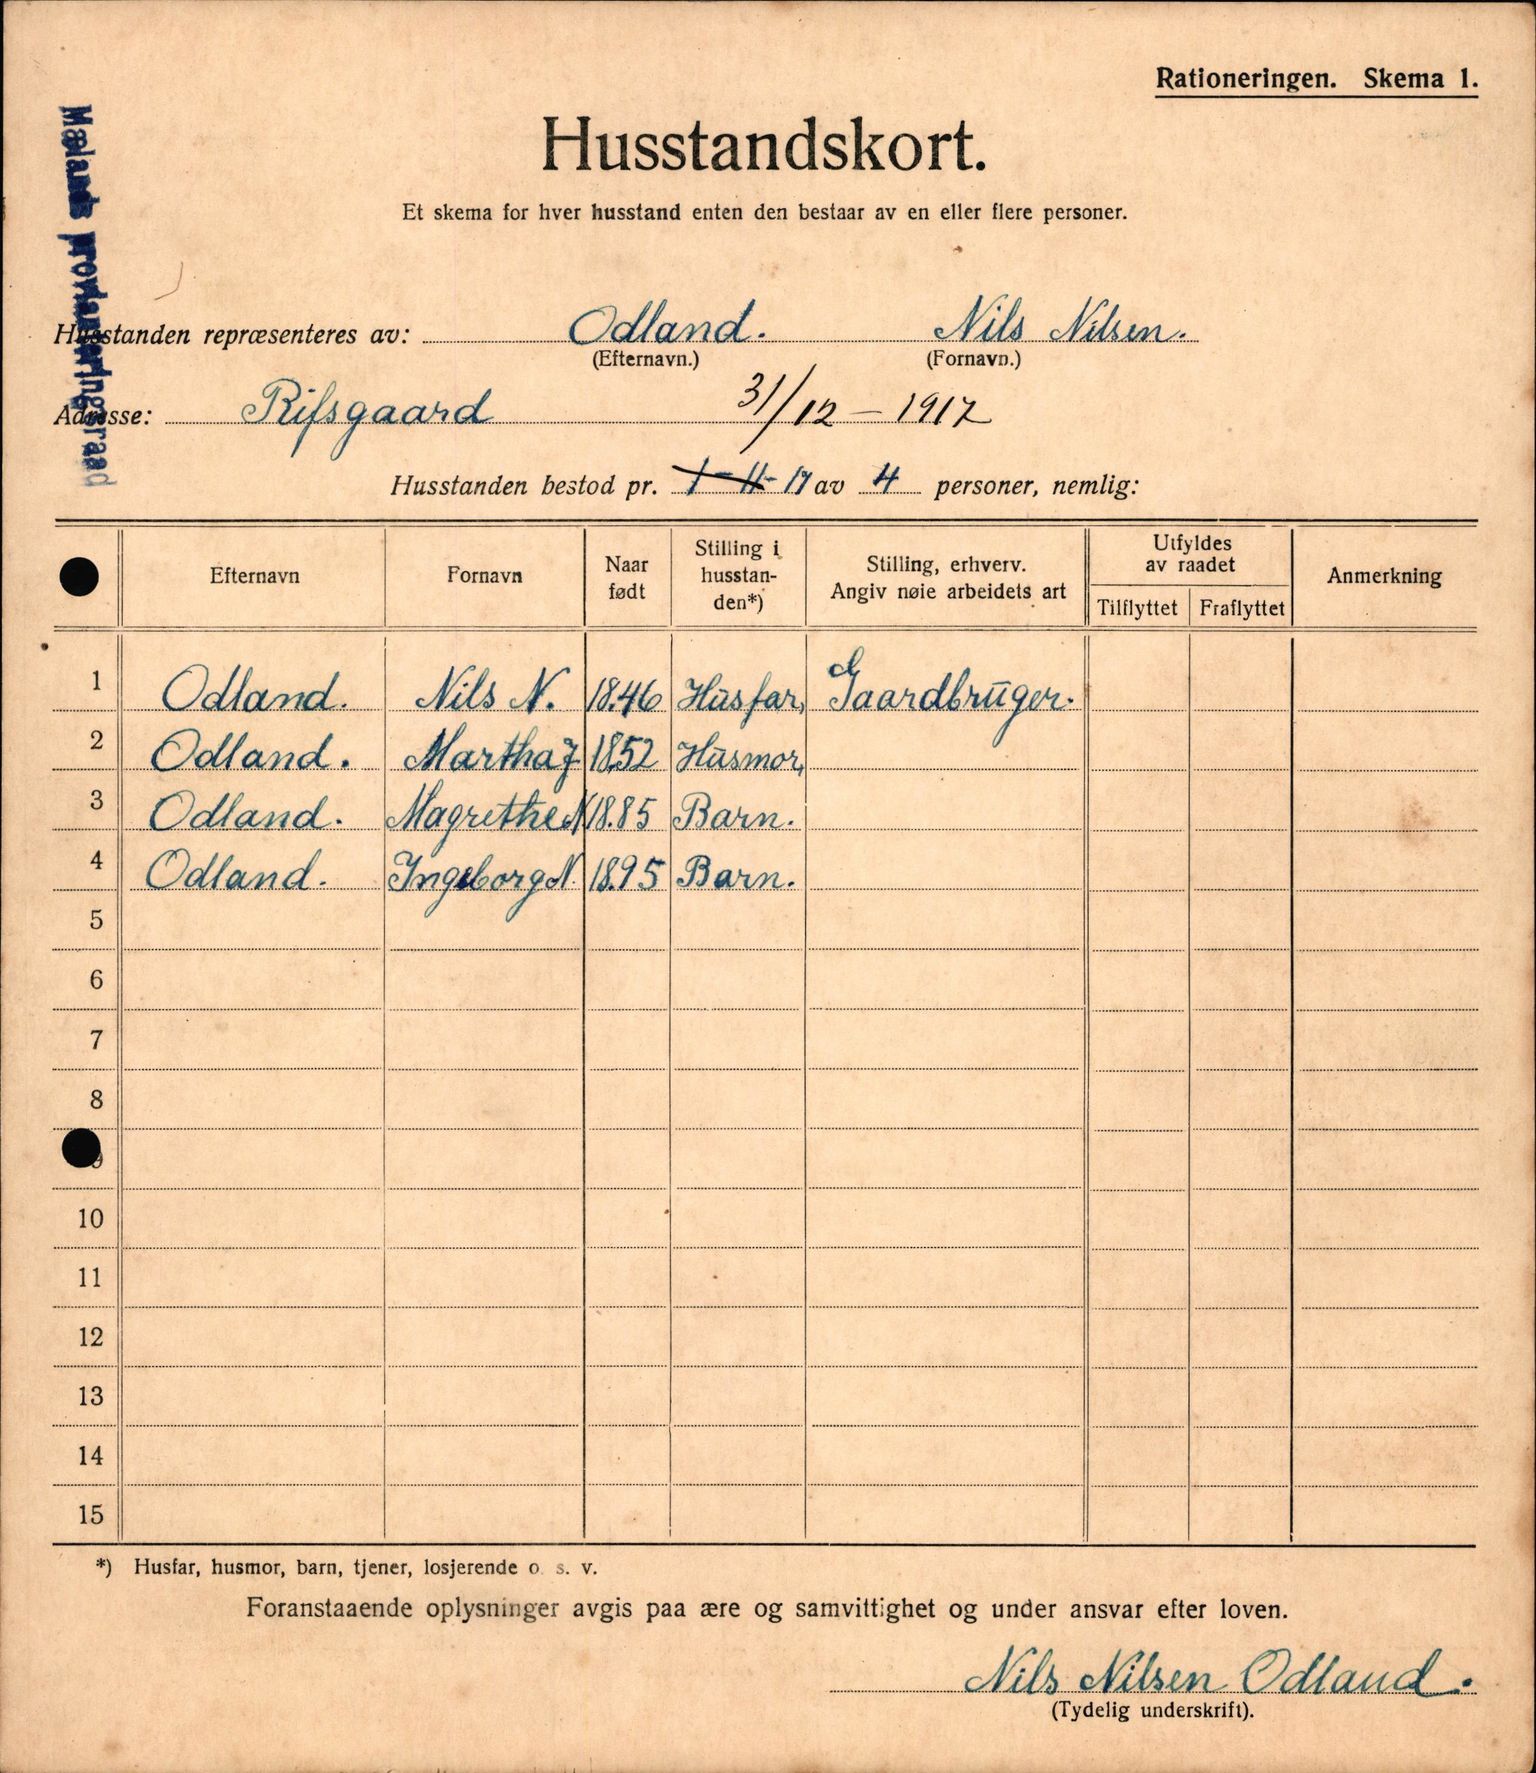 Rationeringen. Skema 1.
Husstandskort.
Et skema for hver husstand enten den bestaar av en eller flere personer.
Mælands provianteringsraad
Husstanden repræsenteres av: Odland. Nils Nilsen.
(Efternavn.) (Fornavn.)
Adresse: Rifsgaard 31/12 - 1917
Husstanden bestod pr. 1 - 11 - 17 av 4 personer, nemlig:
Efternavn Fornavn Naar født Stilling i husstan-den*) Stilling, erhverv. Angiv nøie arbeidets art Utfyldes av raadet Tilflyttet Fraflyttet Anmerkning
1 Odland. Nils N. 1846 Husfar, Gaardbruger.
2 Odland. Martha J 1852 Husmor,
3 Odland. Magrethe N 1885 Barn.
4 Odland. Ingeborg N. 1895 Barn.
5
6
7
8
9
10
11
12
13
14
15
*) Husfar, husmor, barn, tjener, losjerende o. s. v.
Foranstaaende oplysninger avgis paa ære og samvittighet og under ansvar efter loven.
Nils Nilsen Odland.
(Tydelig underskrift).